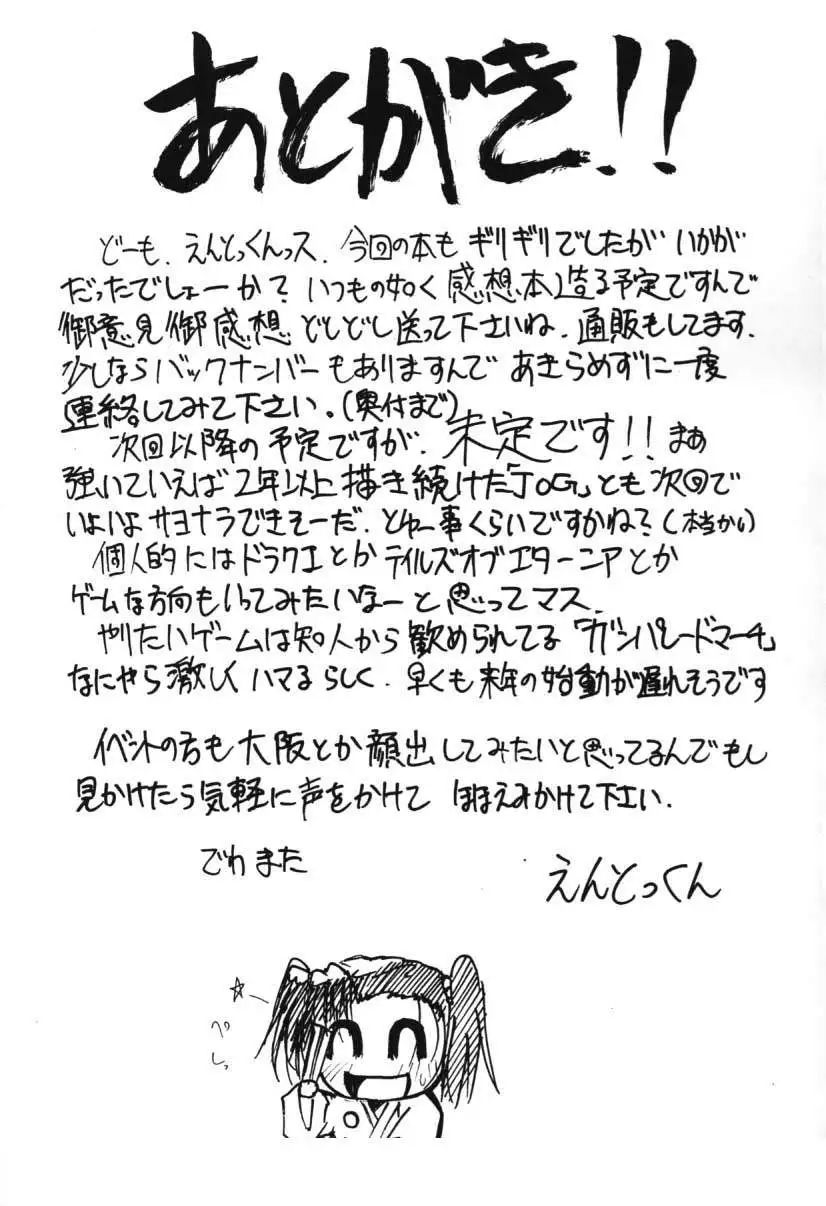 あとがき!!
どーも、えんとっくんっス。今回の本も ギリギリでしたが いかが
だったでしょーか? いつもの如く感想本造る予定ですんで
御意見御感想 どしどし送って下さいね。通販もしてます。
少しならバックナンバーもありますんで あきらめずに一度
連絡してみて下さい。(奥付まで)
次回以降の予定ですが、未定です!! まあ
強いていえば2年以上描き続けた「JOG」とも次回で
いよいよサヨナラできそーだ、とゆー事くらいですかね?(本当かい)
個人的にはドラクエとかテイルズオブエターニアとか
ゲームな方向もいってみたいなーと思ってマス。
やりたいゲームは知人から歓められてる「ガンパレードマーチ」
なにやら激しくハマるらしく、早くも来年の始動が遅れそうです
イベントの方も大阪とか顔出してみたいと思ってるんでもし
見かけたら気軽に声をかけて ほほえみかけて下さい。
でわまた
えんとっくん
ぺしっ